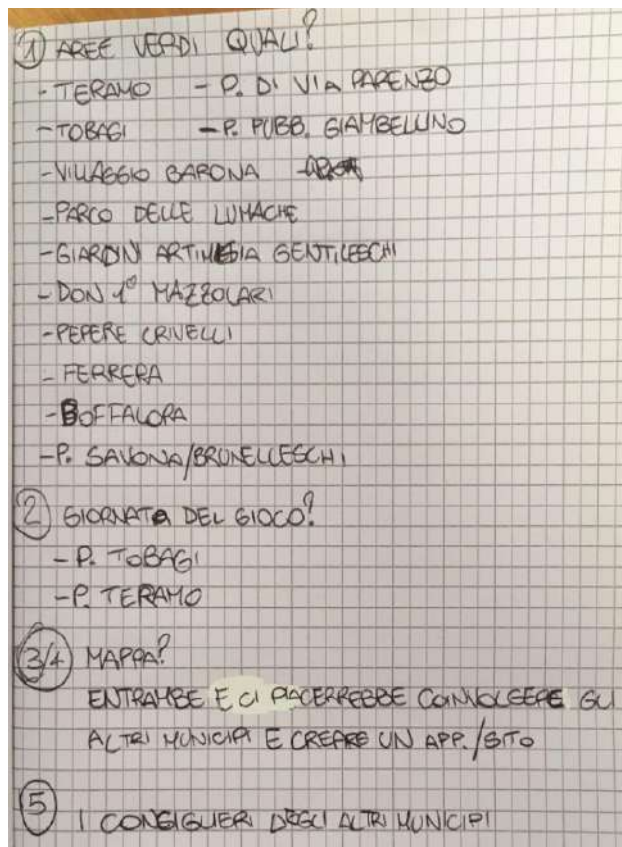 1 AREE VERDI QUALI?
- TERAMO - P. DI VIA PARENZO
- TOBAGI - P. PUBB. GIAMBELLINO
- VILLAGGIO BARONA
- PARCO DELLE LUMACHE
- GIARDINI ARTIMESIA GENTILESCHI
- DON 1° MAZZOLARI
- PEPERE CRIVELLI
- FERRERA
- BOFFALORA
- P. SAVONA/BRUNELLESCHI
2 GIORNATA DEL GIOCO?
- P. TOBAGI
- P. TERAMO
3/4 MAPPA?
ENTRAMBE E CI PIACERREBBE COINVOLGERE GLI
ALTRI MUNICIPI E CREARE UN APP./SITO
5 I CONSIGLIERI DEGLI ALTRI MUNICIPI